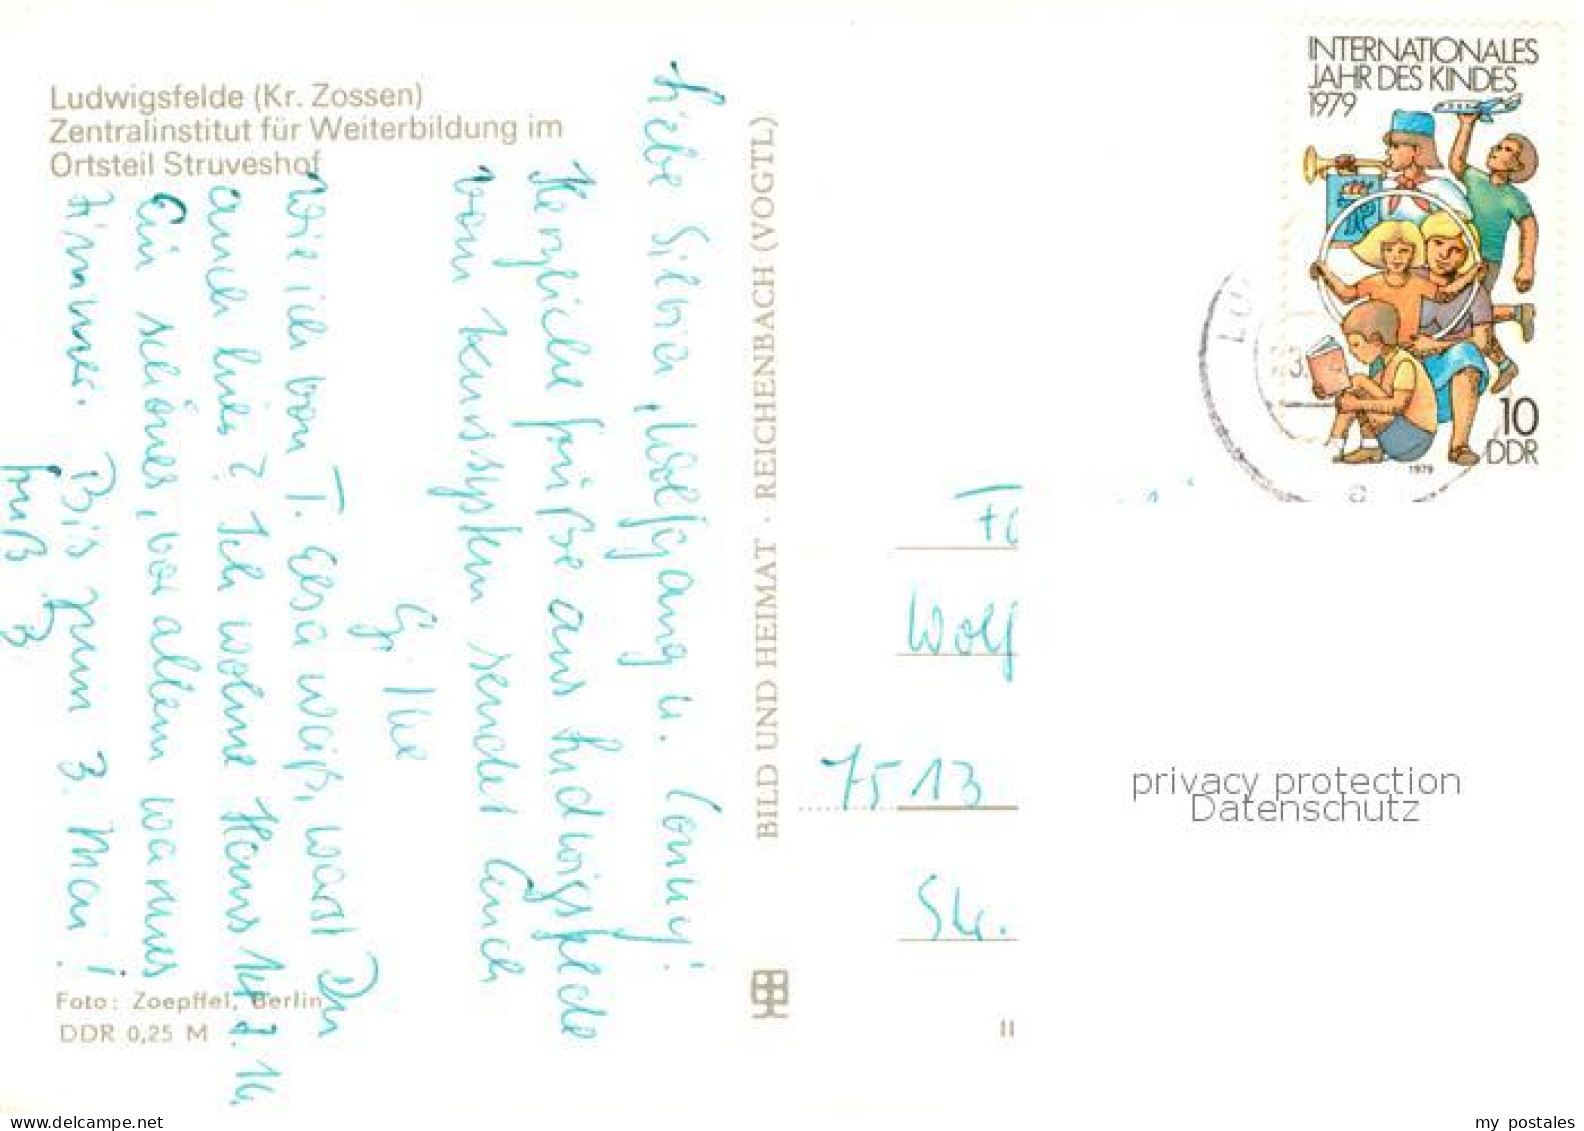 Ludwigsfelde (Kr. Zossen)
Zentralinstitut für Weiterbildung im
Ortsteil Struveshof
Liebe Silvia, Wolfgang u. Conny!
Herzliche Grüße aus Ludwigsfelde
vom Kurssystem sendet Euch
Ilse
Wie ich von T. Elsa weiß, warst Du
auch hier? Ich wohne Haus 14 Z. 14
Ein schönes, vor allem warmes
Zimmer. Bis zum 3. Mai!
Gruß
Foto: Zoepffel, Berlin
DDR 0,25 M
BILD UND HEIMAT · REICHENBACH (VOGTL)
INTERNATIONALES
JAHR DES KINDES
1979
10
DDR
1979
Wolf
7513
Str.
II
privacy protection
Datenschutz
my postales
www.delcampe.net